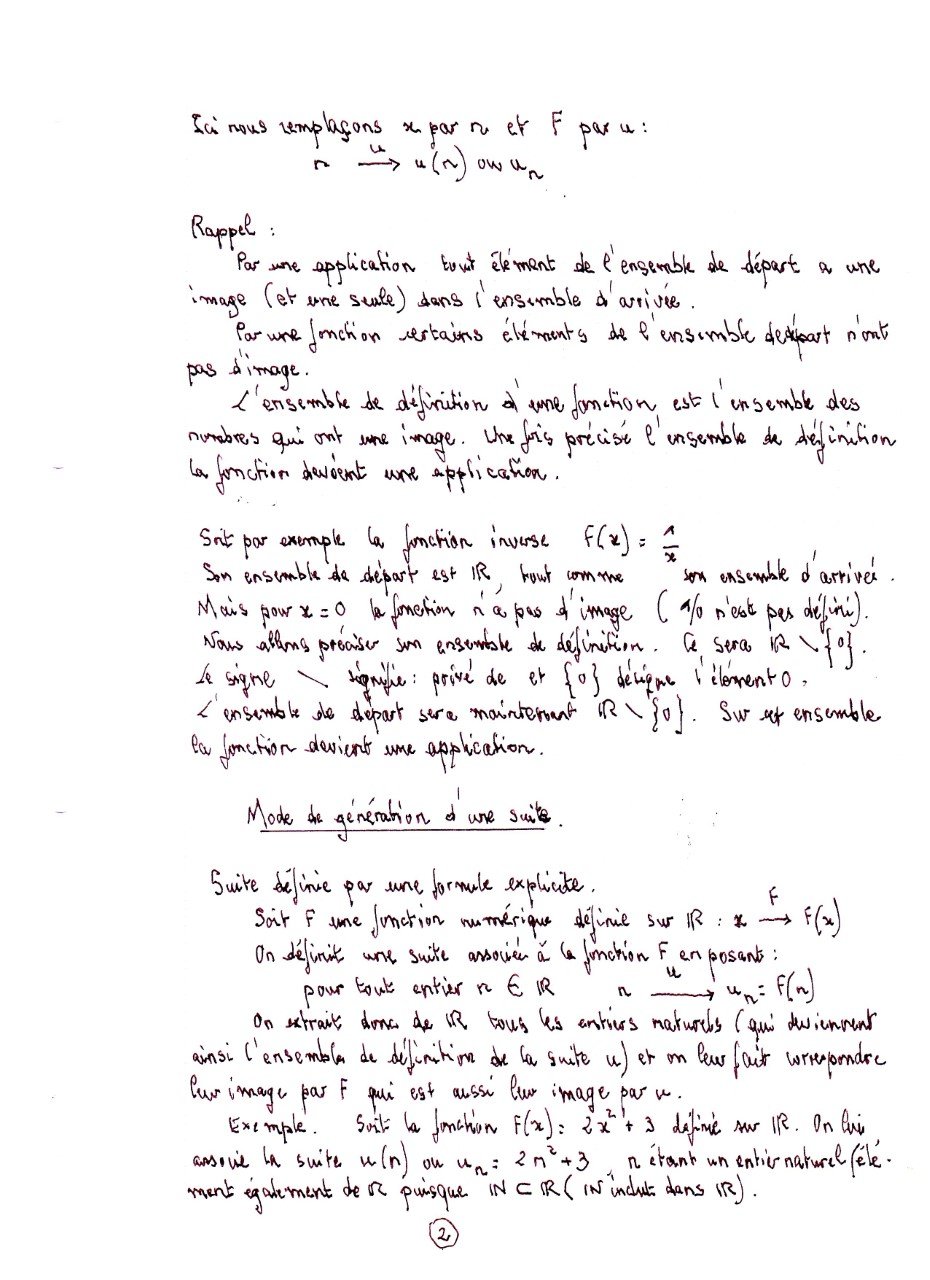 Ici nous remplaçons x par n et F par u :
n —u→ u(n) ou uₙ
Rappel :
Par une application tout élément de l'ensemble de départ a une
image (et une seule) dans l'ensemble d'arrivée.
Par une fonction certains éléments de l'ensemble de départ n'ont
pas d'image.
L'ensemble de définition d'une fonction est l'ensemble des
nombres qui ont une image. Une fois précisé l'ensemble de définition
la fonction devient une application.
Soit par exemple la fonction inverse F(x) = 1/x
Son ensemble de départ est ℝ, tout comme son ensemble d'arrivée.
Mais pour x = 0 la fonction n'a pas d'image ( 1/0 n'est pas défini).
Nous allons préciser son ensemble de définition. Ce sera ℝ \ {0}.
Le signe \ signifie : privé de et {0} désigne l'élément 0.
L'ensemble de départ sera maintenant ℝ \ {0}. Sur cet ensemble
la fonction devient une application.
Mode de génération d'une suite.
Suite définie par une formule explicite.
Soit F une fonction numérique définie sur ℝ : x —F→ F(x)
On définit une suite associée à la fonction F en posant :
pour tout entier n ∈ ℝ n —u→ uₙ = F(n)
On extrait donc de ℝ tous les entiers naturels (qui deviennent
ainsi l'ensemble de définition de la suite u) et on leur fait correspondre
leur image par F qui est aussi leur image par u.
Exemple. Soit la fonction F(x) = 2x² + 3 définie sur ℝ. On lui
associe la suite u(n) ou uₙ = 2n² + 3, n étant un entier naturel (élé-
ment également de ℝ puisque ℕ ⊂ ℝ (ℕ inclut dans ℝ).
2